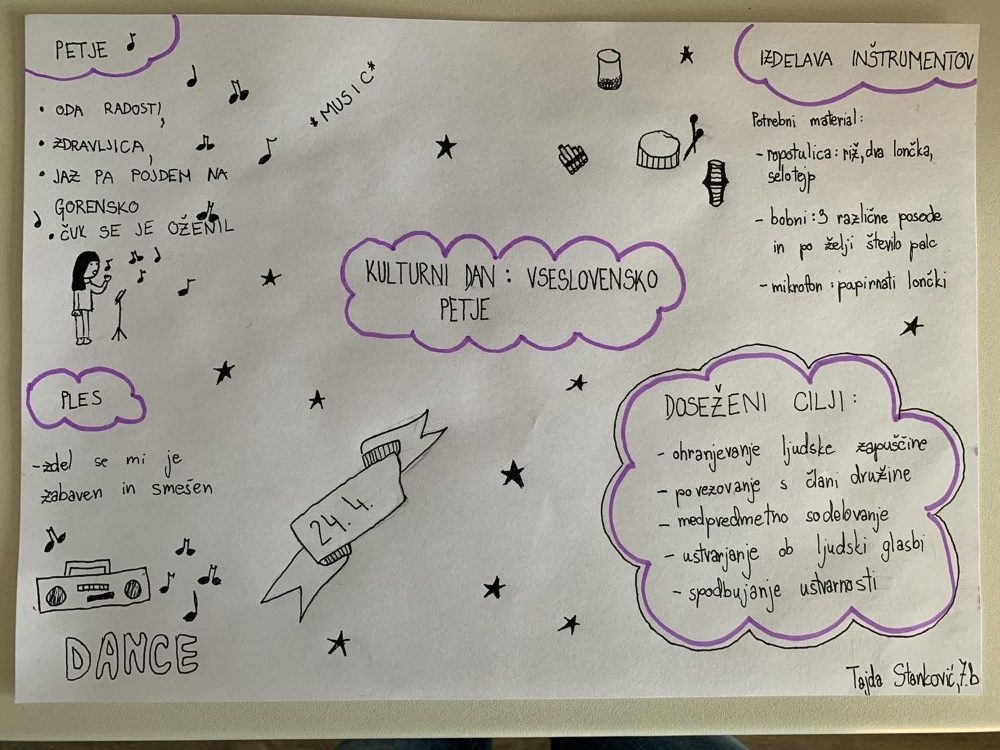 PETJE
• ODA RADOSTI,
• ZDRAVLJICA,
• JAZ PA POJDEM NA
GORENSKO
• ČUK SE JE OŽENIL
*MUSIC*
IZDELAVA INŠTRUMENTOV
Potrebni material:
- ropotulica: riž, dva lončka,
selotejp
- bobni: 3 različne posode
in po želji število palc
- mikrofon: papirnati lončki
KULTURNI DAN: VSESLOVENSKO
PETJE
PLES
- zdel se mi je
zabaven in smešen
DANCE
24. 4.
DOSEŽENI CILJI:
- ohranjevanje ljudske zapuščine
- povezovanje s člani družine
- medpredmetno sodelovanje
- ustvarjanje ob ljudski glasbi
- spodbujanje ustvarnosti
Tajda Stanković, 7.b